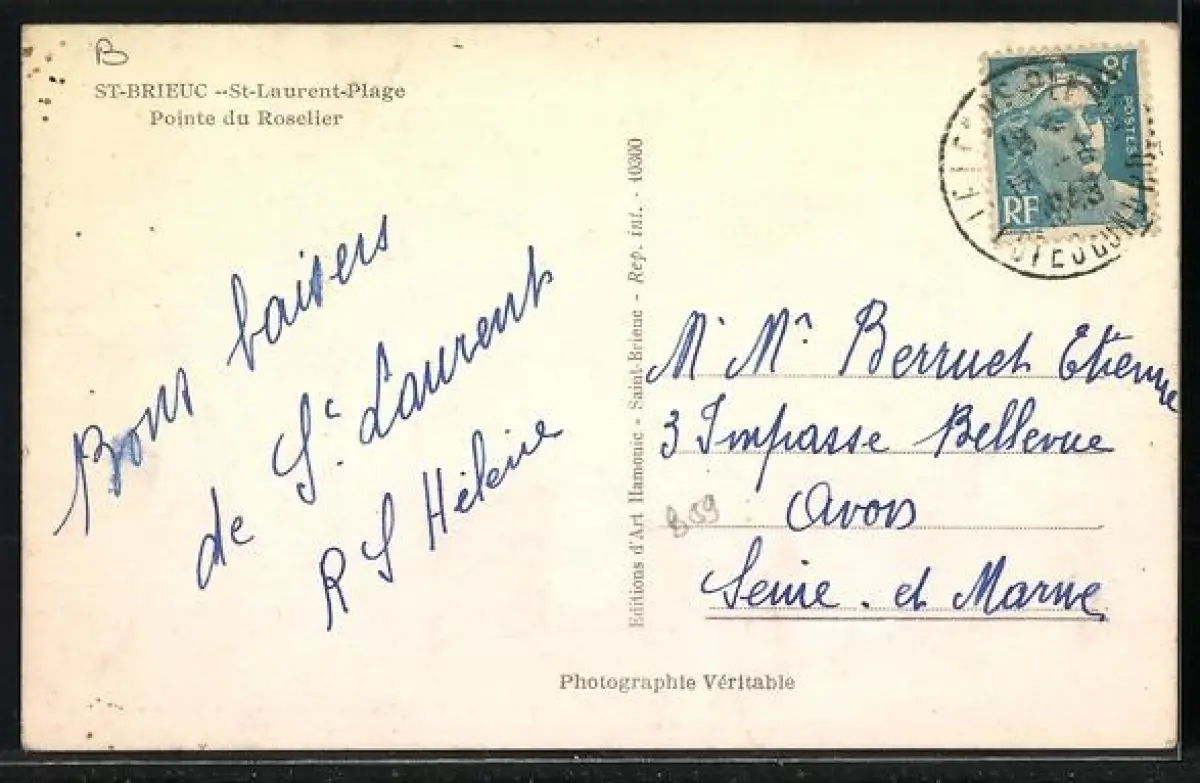 B
ST-BRIEUC -- St-Laurent-Plage
Pointe du Roselier
Bons baisers
de St Laurent
R S Hélène
Editions d'Art Hamonic - Saint-Brieuc - Rep. int. - 10300
8f
POSTES
RF
M Mr Berruet Etienne
3 Impasse Bellevue
Avon
859
Seine - et Marne
Photographie Véritable